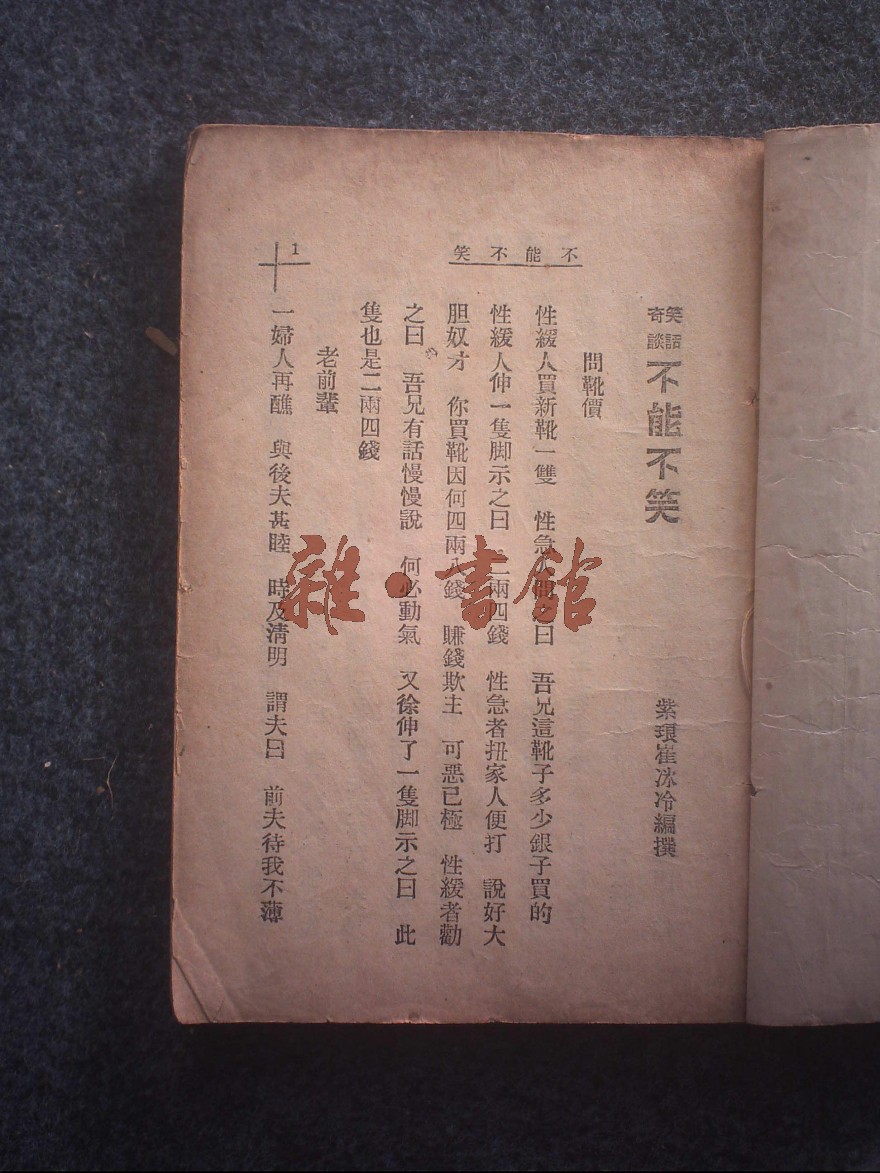 笑話奇談 不能不笑
紫琅崔冰冷編撰
問靴價
性緩人買新靴一雙　性急人問之曰　吾兄這靴子多少銀子買的
性緩人伸一隻脚示之曰　二兩四錢　性急者扭家人便打　說好大
胆奴才　你買靴因何四兩八錢　賺錢欺主　可惡已極　性緩者勸
之曰　吾兄有話慢慢說　何必動氣　又徐伸了一隻脚示之曰　此
隻也是二兩四錢
老前輩
一婦人再醮　與後夫甚睦　時及清明　謂夫曰　前夫待我不薄
不能不笑
1
雜·書館